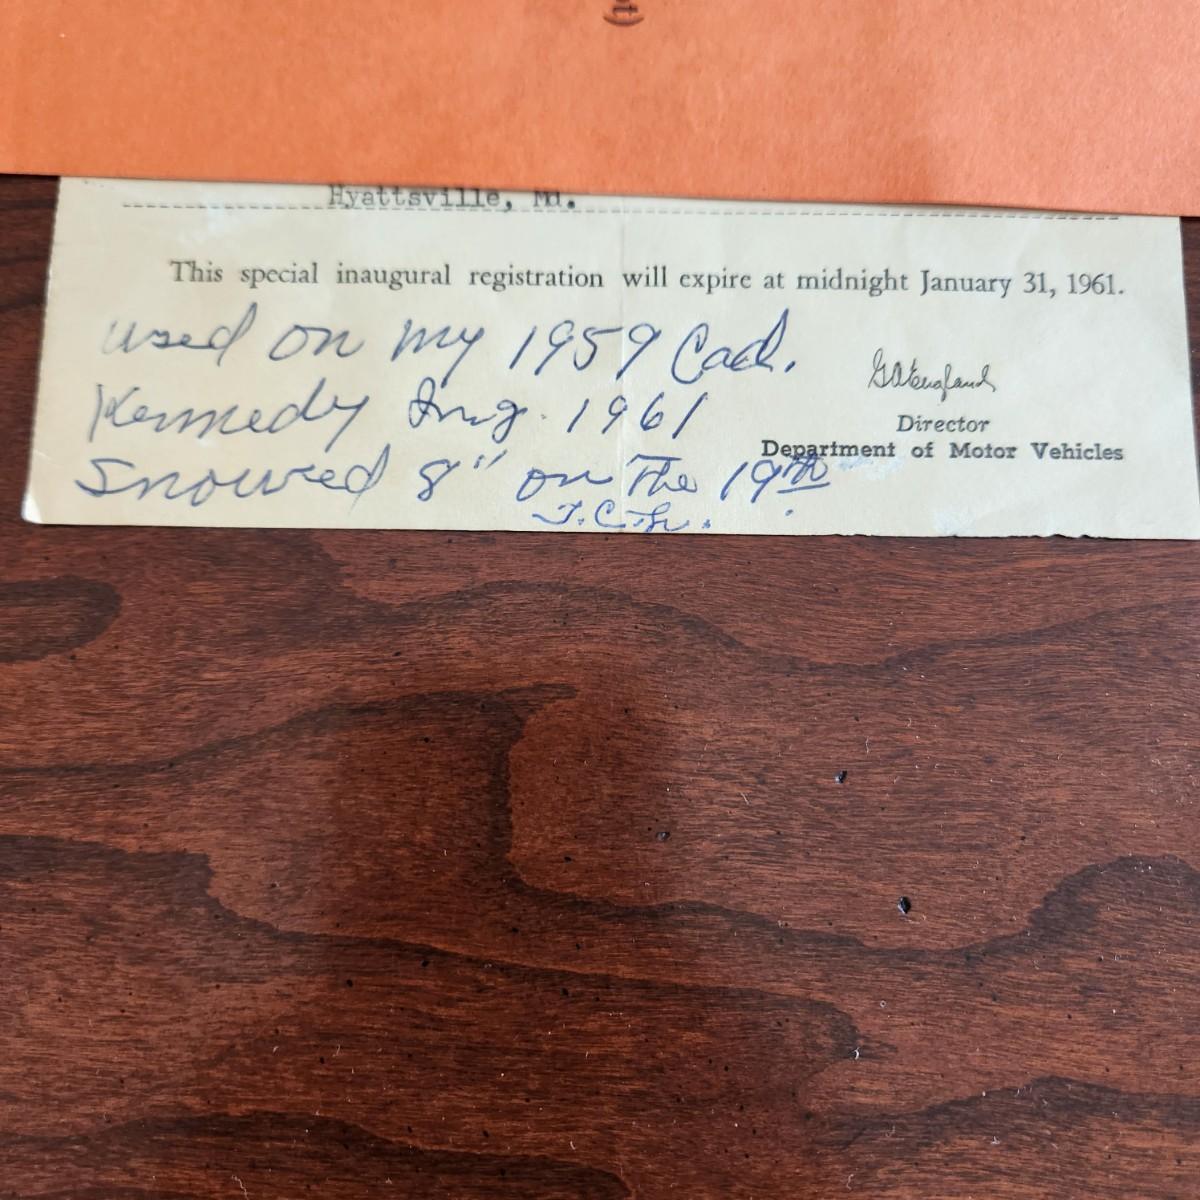 ot)
Hyattsville, Md.
This special inaugural registration will expire at midnight January 31, 1961.
used on my 1959 Cad.
Kennedy Inug. 1961
Director
Department of Motor Vehicles
Snowed 8" on The 19th